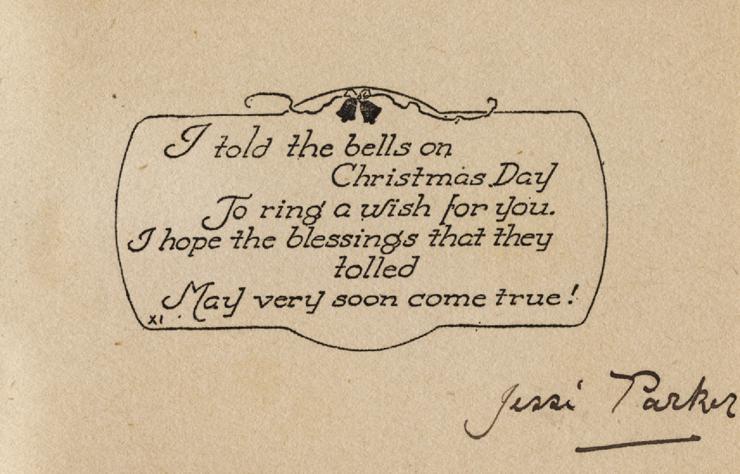 I told the bells on
Christmas Day
To ring a wish for you.
I hope the blessings that they
tolled
May very soon come true!
XI
Jessi Parker